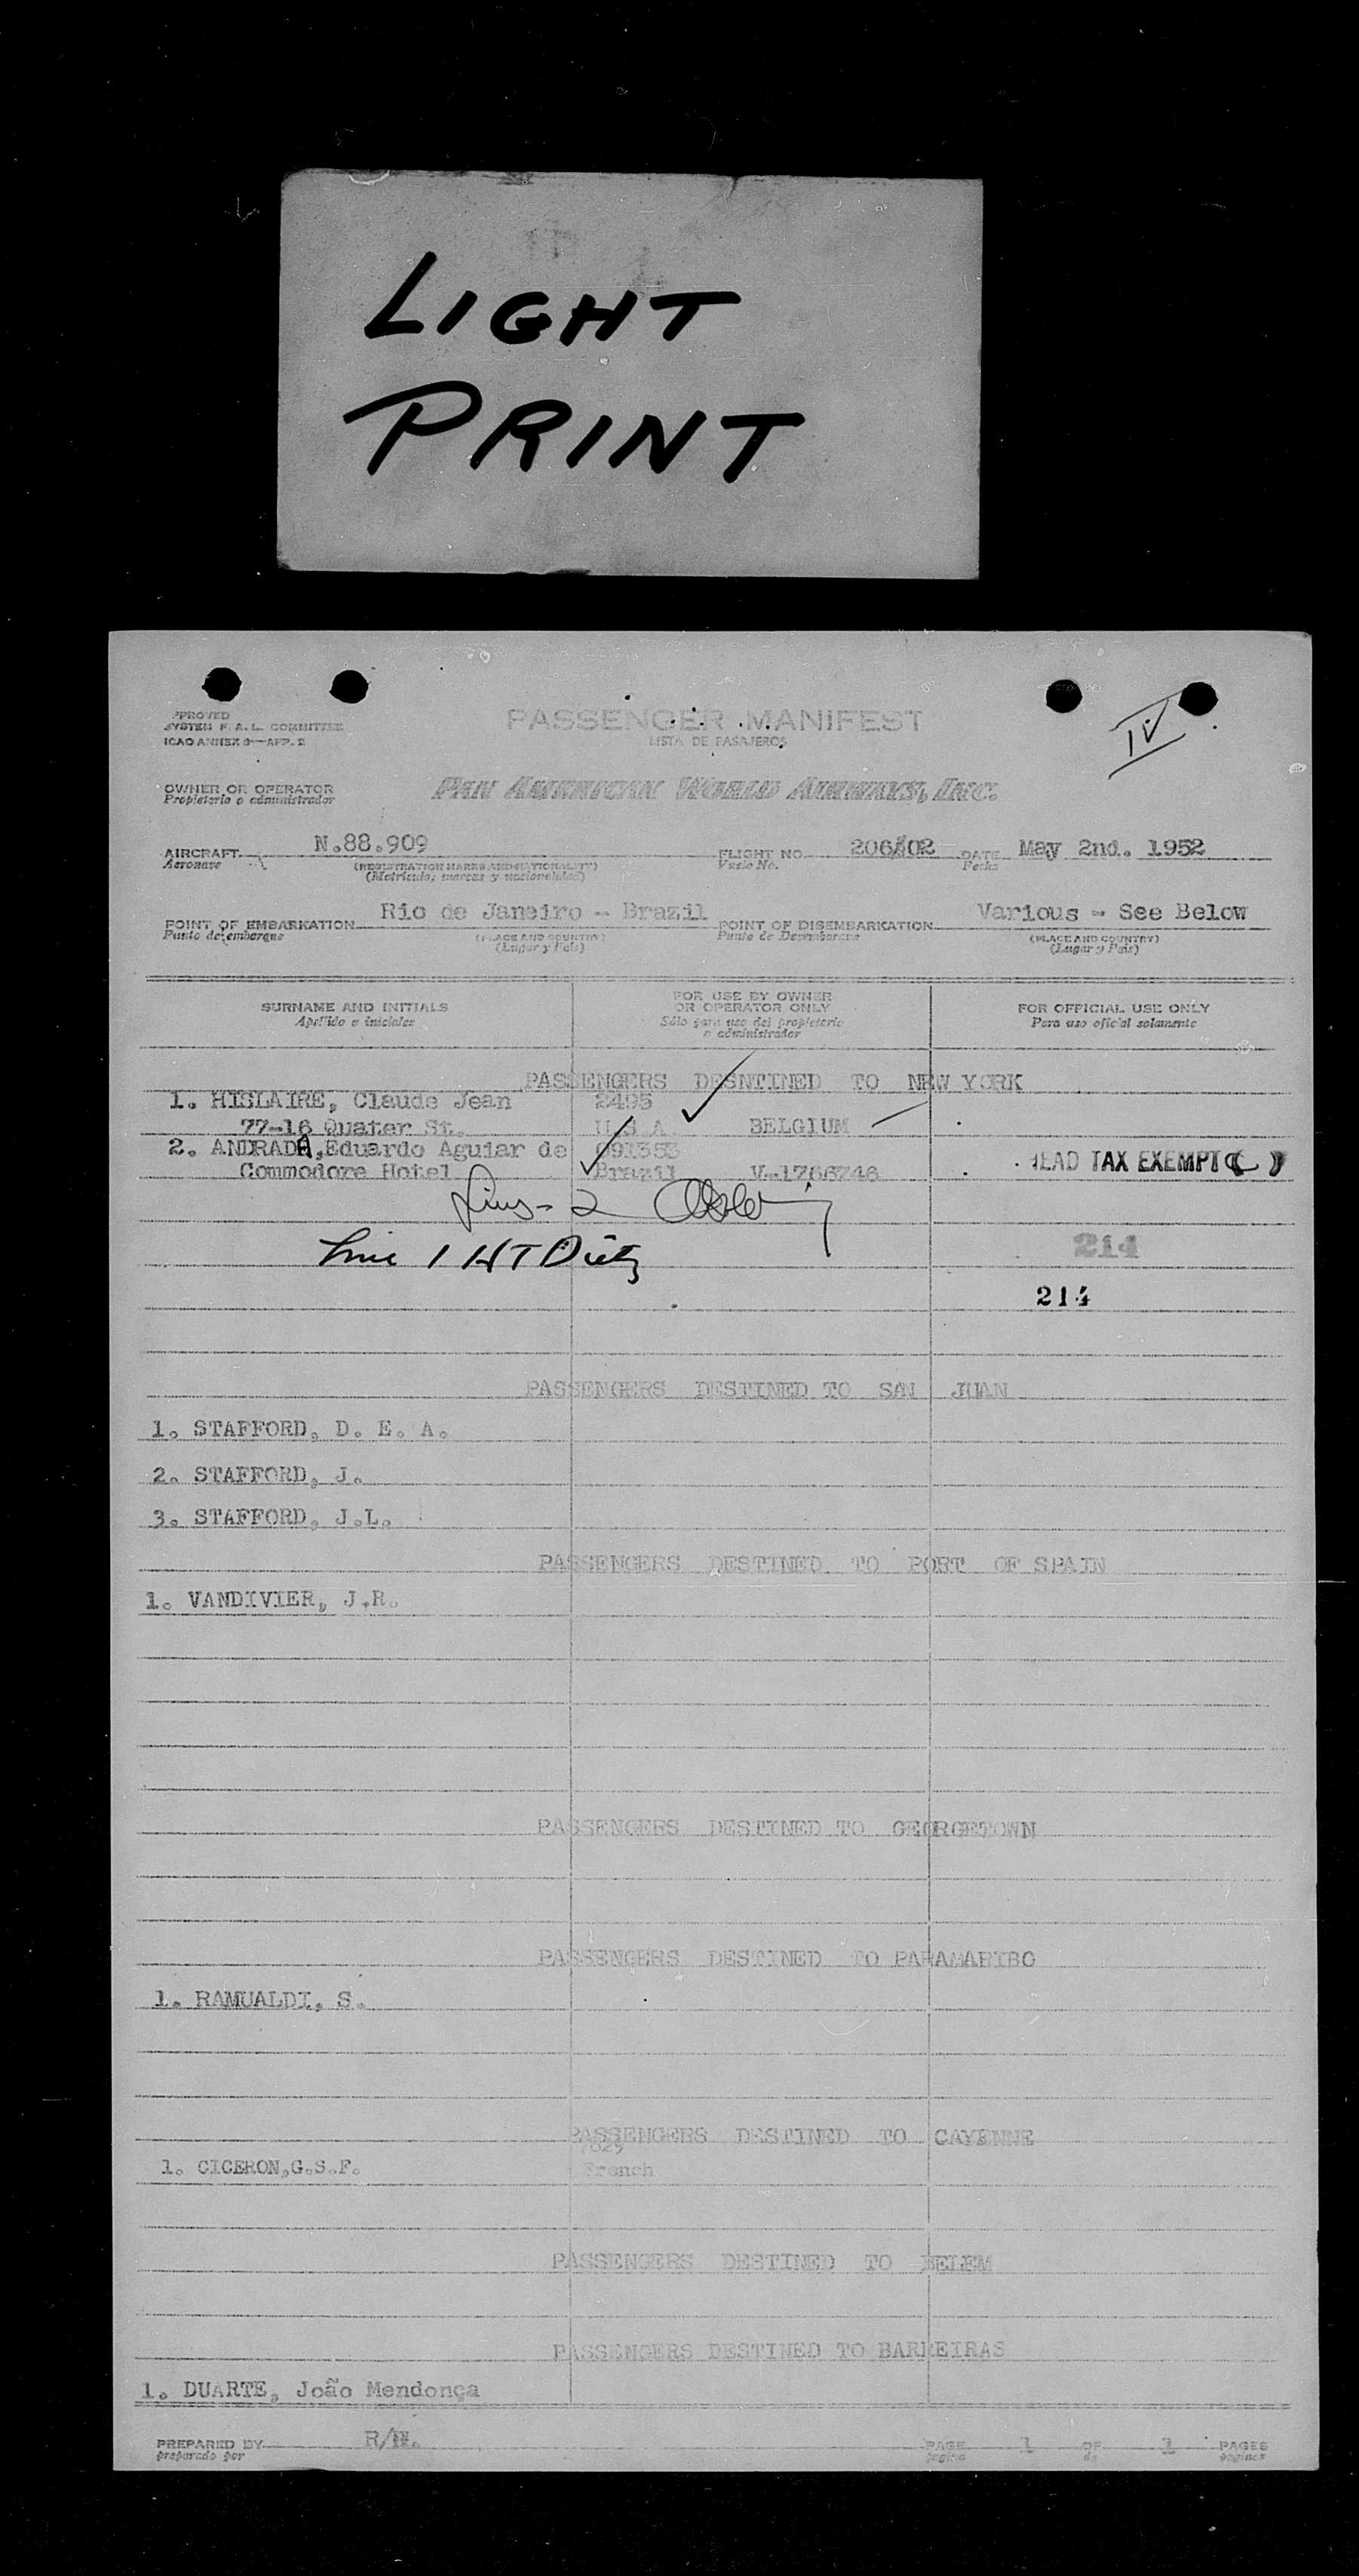 LIGHT
PRINT
PASSENGER MANIFEST
LISTA DE PASAJEROS
IV
APPROVED
SYSTEM F. A. L. COMMITTEE
ICAO ANNEX 9—APP. 2
OWNER OR OPERATOR
Propietario o administrador
PAN AMERICAN WORLD AIRWAYS, INC.
AIRCRAFT N.88.909 FLIGHT NO. 206/02 DATE May 2nd. 1952
Aeronave (REGISTRATION MARKS AND NATIONALITY) Vuelo No. Fecha
(Matrícula, marcas y nacionalidad)
POINT OF EMBARKATION Rio de Janeiro - Brazil POINT OF DISEMBARKATION Various - See Below
Punto de embarque (PLACE AND COUNTRY) Punto de Desembarque (PLACE AND COUNTRY)
(Lugar y País) (Lugar y País)
SURNAME AND INITIALS FOR USE BY OWNER OR OPERATOR ONLY FOR OFFICIAL USE ONLY
Apellido e iniciales Sólo para uso del propietario o administrador Para uso oficial solamente
PASSENGERS DESNTINED TO NEW YORK
1. HISLAIRE, Claude Jean 2495
77-16 Quater St. U.S.A. BELGIUM
2. ANDRADA, Eduardo Aguiar de 091353
Commodore Hotel Brazil V-1766746 HEAD TAX EXEMPT ( )
Lins - 2
Line 1 HT Dietz
214
214
PASSENGERS DESTINED TO SAN JUAN
1. STAFFORD, D. E. A.
2. STAFFORD, J.
3. STAFFORD, J.L.
PASSENGERS DESTINED TO PORT OF SPAIN
1. VANDIVIER, J.R.
PASSENGERS DESTINED TO GEORGETOWN
PASSENGERS DESTINED TO PARAMARIBO
1. RAMUALDI, S.
PASSENGERS DESTINED TO CAYENNE
1. CICERON,G.S.F. French
PASSENGERS DESTINED TO BELEM
PASSENGERS DESTINED TO BARREIRAS
1. DUARTE, João Mendonça
PREPARED BY R/H. PAGE 1 OF 1 PAGES
preparado por página de páginas